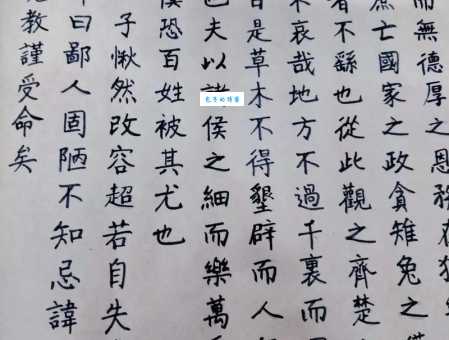 而無德厚之恩務在
庶亡國家之政貪雉兔之
者不繇也從此觀之齊楚
不哀哉地方不過千裏而
百是草木不得墾辟而人
也夫以諸侯之細而樂萬
僕恐百姓被其尤也
子愀然改容超若自失
曰鄙人固陋不知忌諱
教謹受命矣